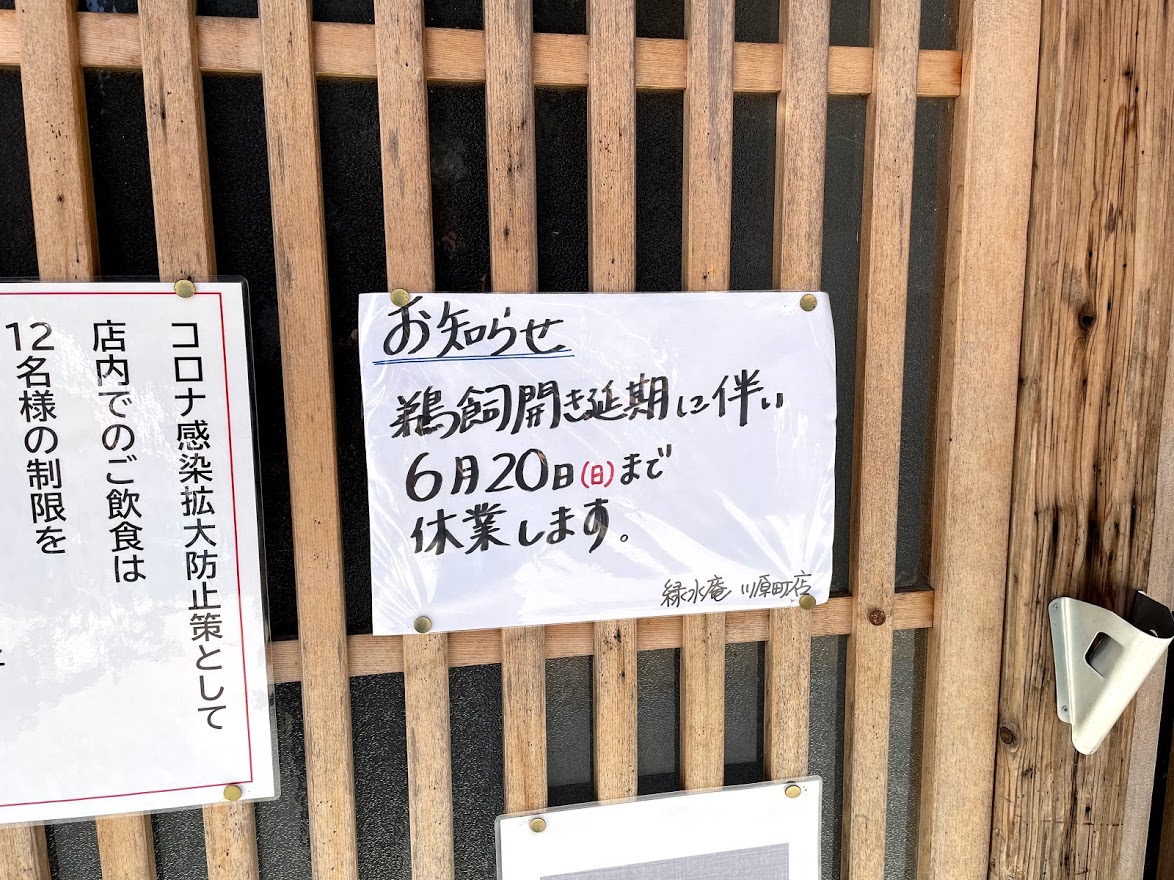 お知らせ
鵜飼開き延期に伴い
6月20日(日)まで
休業します。
緑水庵 川原町店
コロナ感染拡大防止策として
店内でのご飲食は
12名様の制限を